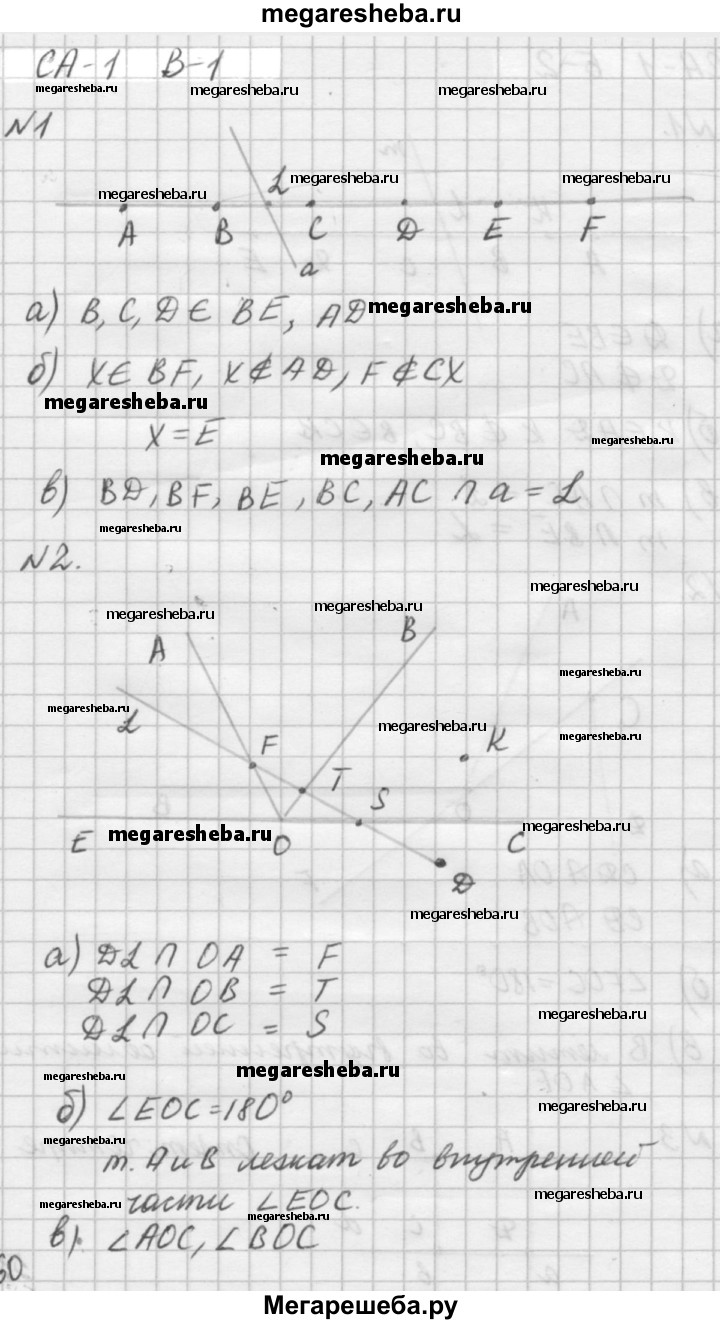 megaresheba.ru
СА-1 В-1
megaresheba.ru megaresheba.ru megaresheba.ru
N1
L megaresheba.ru megaresheba.ru
megaresheba.ru
A B C D E F
a
а) B, C, D ∈ BE, AD megaresheba.ru
б) X ∈ BF, X ∉ AD, F ∉ CX
megaresheba.ru
X = E megaresheba.ru
megaresheba.ru
в) BD, BF, BE, BC, AC ∩ a = L
megaresheba.ru
N2.
megaresheba.ru
megaresheba.ru megaresheba.ru
A B
megaresheba.ru
megaresheba.ru
L megaresheba.ru megaresheba.ru
F K
T
S
E megaresheba.ru O C megaresheba.ru
D
megaresheba.ru
а) DL ∩ OA = F
DL ∩ OB = T
DL ∩ OC = S megaresheba.ru
megaresheba.ru megaresheba.ru
б) ∠EOC = 180° megaresheba.ru
megaresheba.ru
т. A и B лежат во внутренней
megaresheba.ru части ∠EOC. megaresheba.ru
megaresheba.ru
в). ∠AOC, ∠BOC
Мегарешеба.ру